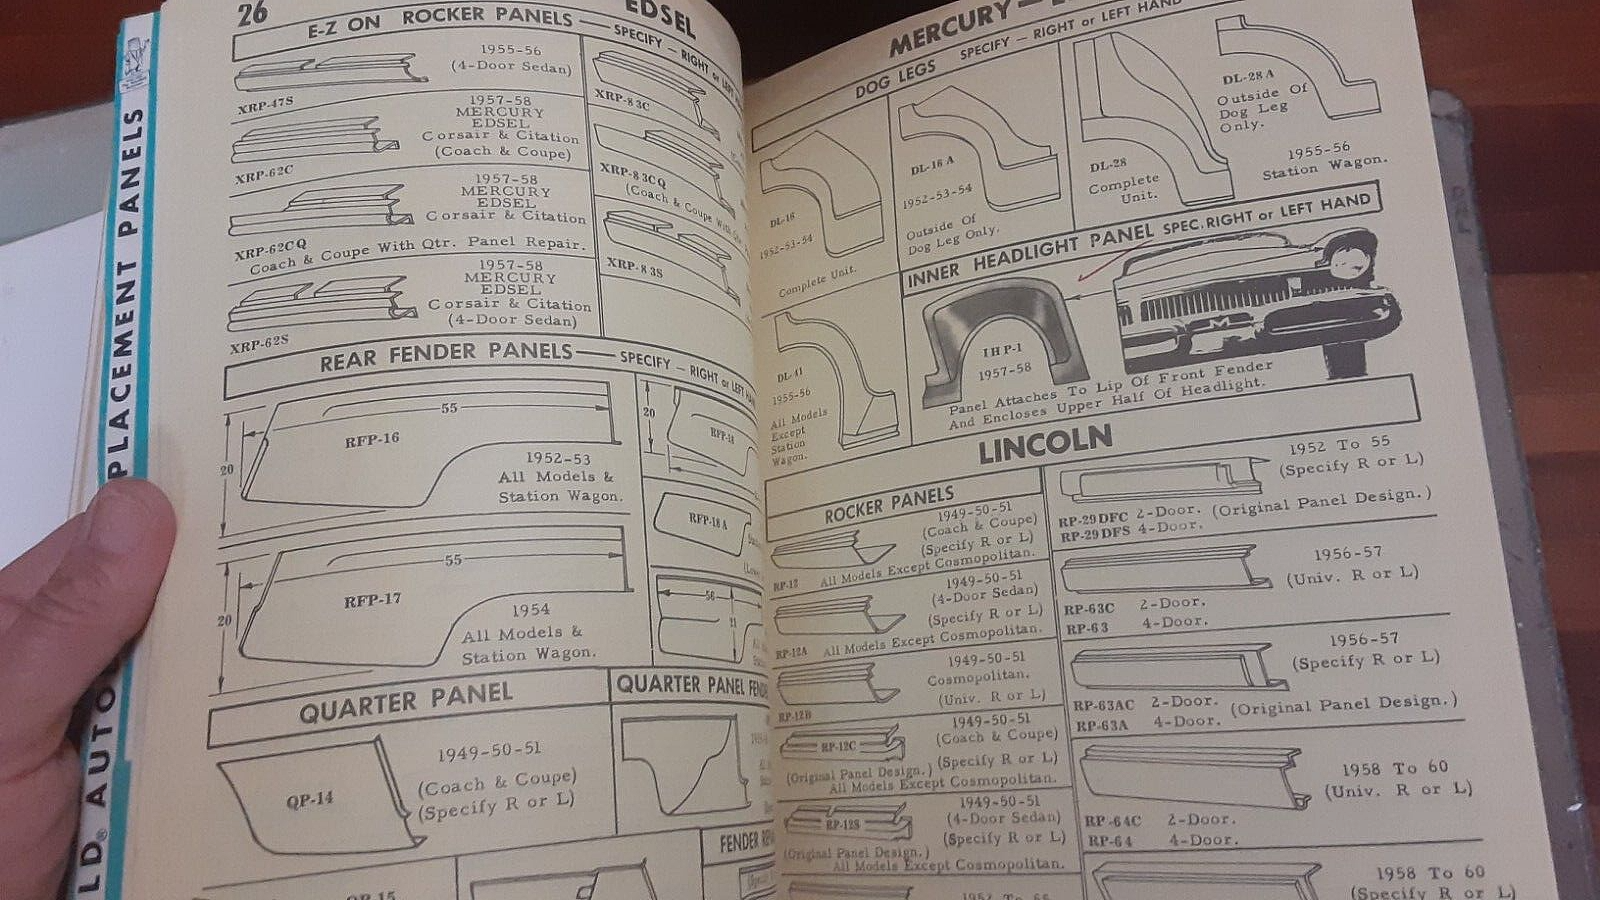 PLACEMENT PANELS
LD. AUTO
26
EDSEL
E-Z ON ROCKER PANELS — SPECIFY — RIGHT or LEFT HAND
1955-56
(4-Door Sedan)
XRP-47S
1957-58
MERCURY
EDSEL
Corsair & Citation
(Coach & Coupe)
XRP-62C
1957-58
MERCURY
EDSEL
Corsair & Citation
XRP-62CQ
Coach & Coupe With Qtr. Panel Repair.
1957-58
MERCURY
EDSEL
Corsair & Citation
(4-Door Sedan)
XRP-62S
XRP-83C
XRP-83CQ
(Coach & Coupe With
XRP-83S
REAR FENDER PANELS — SPECIFY — RIGHT or LEFT
55
20
RFP-16
1952-53
All Models &
Station Wagon.
55
20
RFP-17
1954
All Models &
Station Wagon.
20
RFP-18
RFP-18A
56
11
QUARTER PANEL
QP-14
1949-50-51
(Coach & Coupe)
(Specify R or L)
QUARTER PANEL
FENDER
QP-15
MERCURY —
DOG LEGS SPECIFY — RIGHT or LEFT HAND
DL-16
1952-53-54
Complete Unit.
DL-16A
1952-53-54
Outside Of
Dog Leg Only.
DL-28
Complete
Unit.
DL-28A
Outside Of
Dog Leg
Only.
1955-56
Station Wagon.
DL-41
1955-56
All Models
Except
Station
Wagon.
INNER HEADLIGHT PANEL SPEC. RIGHT or LEFT HAND
IHP-1
1957-58
M
Panel Attaches To Lip Of Front Fender
And Encloses Upper Half Of Headlight.
LINCOLN
ROCKER PANELS
1949-50-51
(Coach & Coupe)
(Specify R or L)
RP-12 All Models Except Cosmopolitan.
1949-50-51
(4-Door Sedan)
(Specify R or L)
RP-12A All Models Except Cosmopolitan.
1949-50-51
Cosmopolitan.
(Univ. R or L)
RP-12B
1949-50-51
(Coach & Coupe)
RP-12C
(Specify R or L)
(Original Panel Design.)
All Models Except Cosmopolitan.
1949-50-51
(4-Door Sedan)
RP-12S
(Specify R or L)
(Original Panel Design.)
All Models Except Cosmopolitan.
1952 To 55
(Specify R or L)
RP-29DFC 2-Door. (Original Panel Design.)
RP-29DFS 4-Door.
1956-57
(Univ. R or L)
RP-63C 2-Door.
RP-63 4-Door.
1956-57
(Specify R or L)
RP-63AC 2-Door. (Original Panel Design.)
RP-63A 4-Door.
1958 To 60
(Univ. R or L)
RP-64C 2-Door.
RP-64 4-Door.
1958 To 60
(Specify R or L)